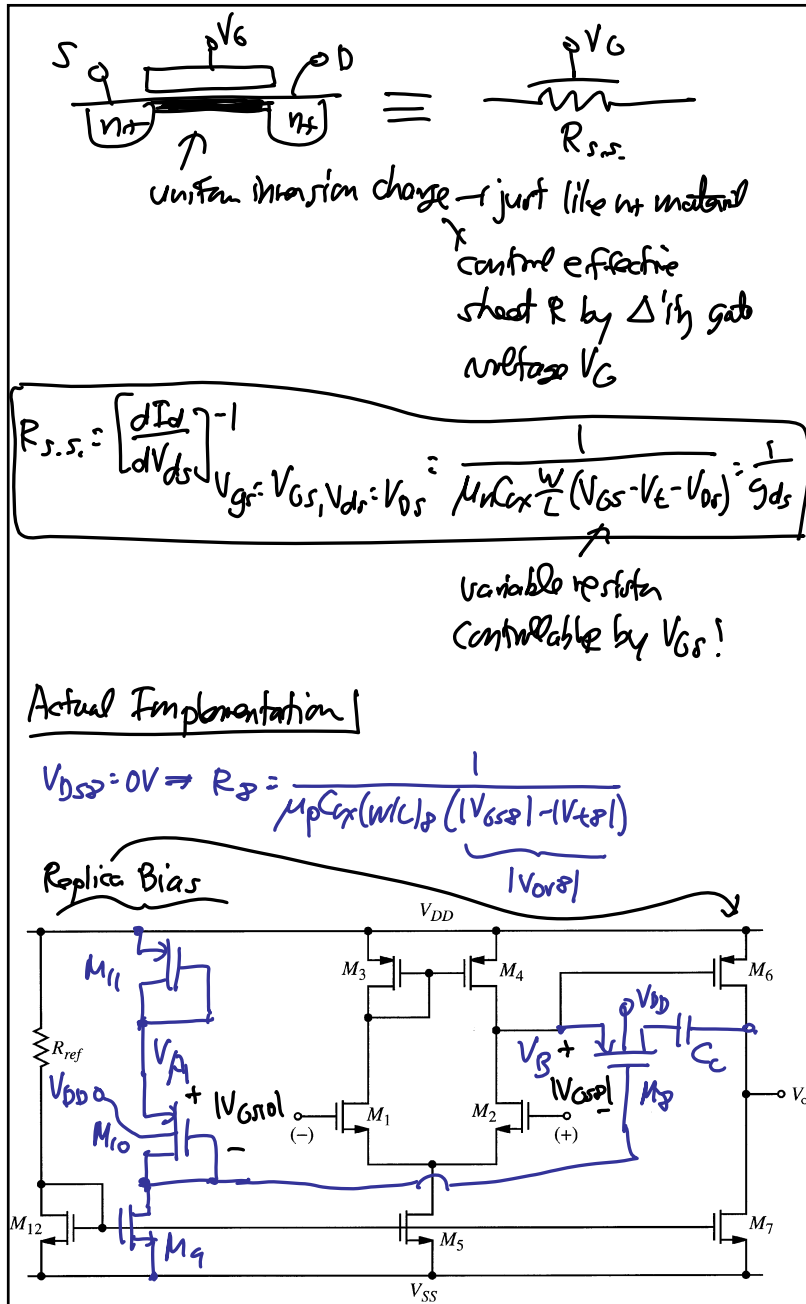 V_G
S D
n+ n+ ≡ V_G
R_s.s.
uniform inversion charge → just like n+ material
control effective
sheet R by Δ'ing gate
voltage V_G
R_s.s. = [dI_d/dV_ds]^-1 V_gs=V_GS, V_ds=V_DS = 1/(μ_n C_ox W/L (V_GS - V_t - V_DS)) = 1/g_ds
variable resistor
controllable by V_GS!
Actual Implementation
V_DS8 = 0V ⇒ R_8 = 1/(μ_p C_ox (W/L)_8 (|V_GS8| - |V_t8|))
|V_ov8|
Replica Bias
V_DD
M_11 M_3 M_4 M_6
R_ref V_A V_B + V_DD C_C
V_DD + |V_GS10| M_1 M_2 |V_GS8| - M_8 V_o
M_10 - (-) (+)
M_12 M_9 M_5 M_7
V_SS